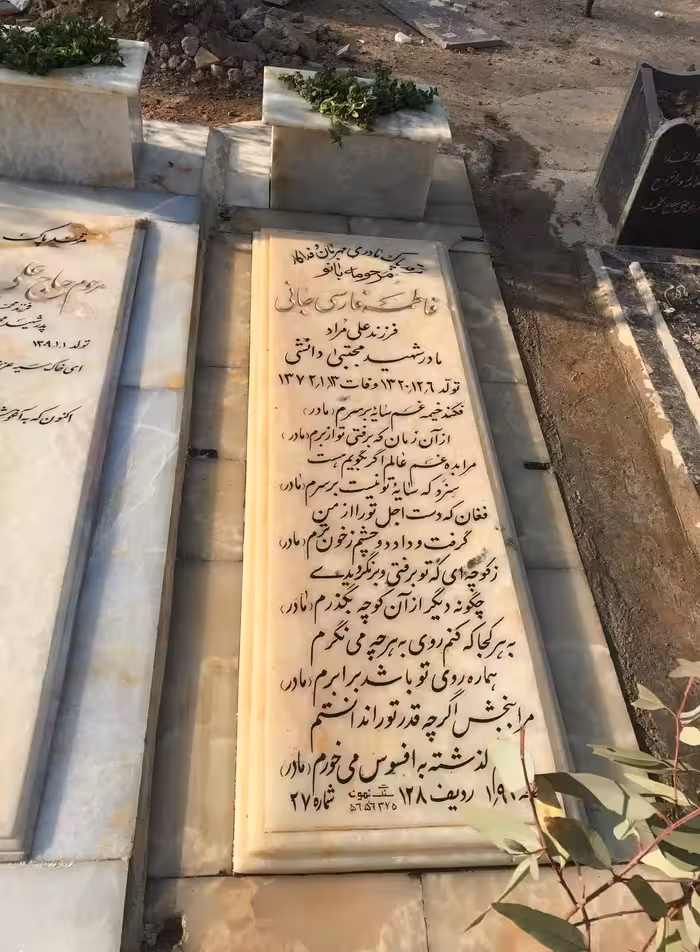 تربت پاک مادری مهربان و فداکار
مرحومه بانو
فاطمه فارسی جانی
فرزند علی مراد
مادر شهید مجتبی دانشی
تولد ۱۳۲۰،۱۲،۶ وفات ۱۳۷۲،۱،۱۳
فکند خیمه غم سایه بر سرم (مادر)
از آن زمان که برفتی تو از برم (مادر)
مرا بده غم عالم اگر بگویم هست
سزد که سایه تو نیست بر سرم (مادر)
فغان که دست اجل تو را از من
گرفت و داد دو چشم ز خون ترم (مادر)
ز کوچه ای که تو برفتی و برنگردیدی
چگونه دیگر از آن کوچه بگذرم (مادر)
به هر کجا که کنم روی به هر چه می نگرم
هماره روی تو باشد برابرم (مادر)
مرا ببخش اگر چه قدر تو را ندانستم
گذشته به افسوس می خورم (مادر)
ردیف ۱۲۸ شماره ۲۷
سنگ نمونه
۵۶۵۶۳۷۵
مرحوم حاج علی
تولد ۱۳۰۹،۱،۱
ای خاک سیه
اکنون که به آغوش